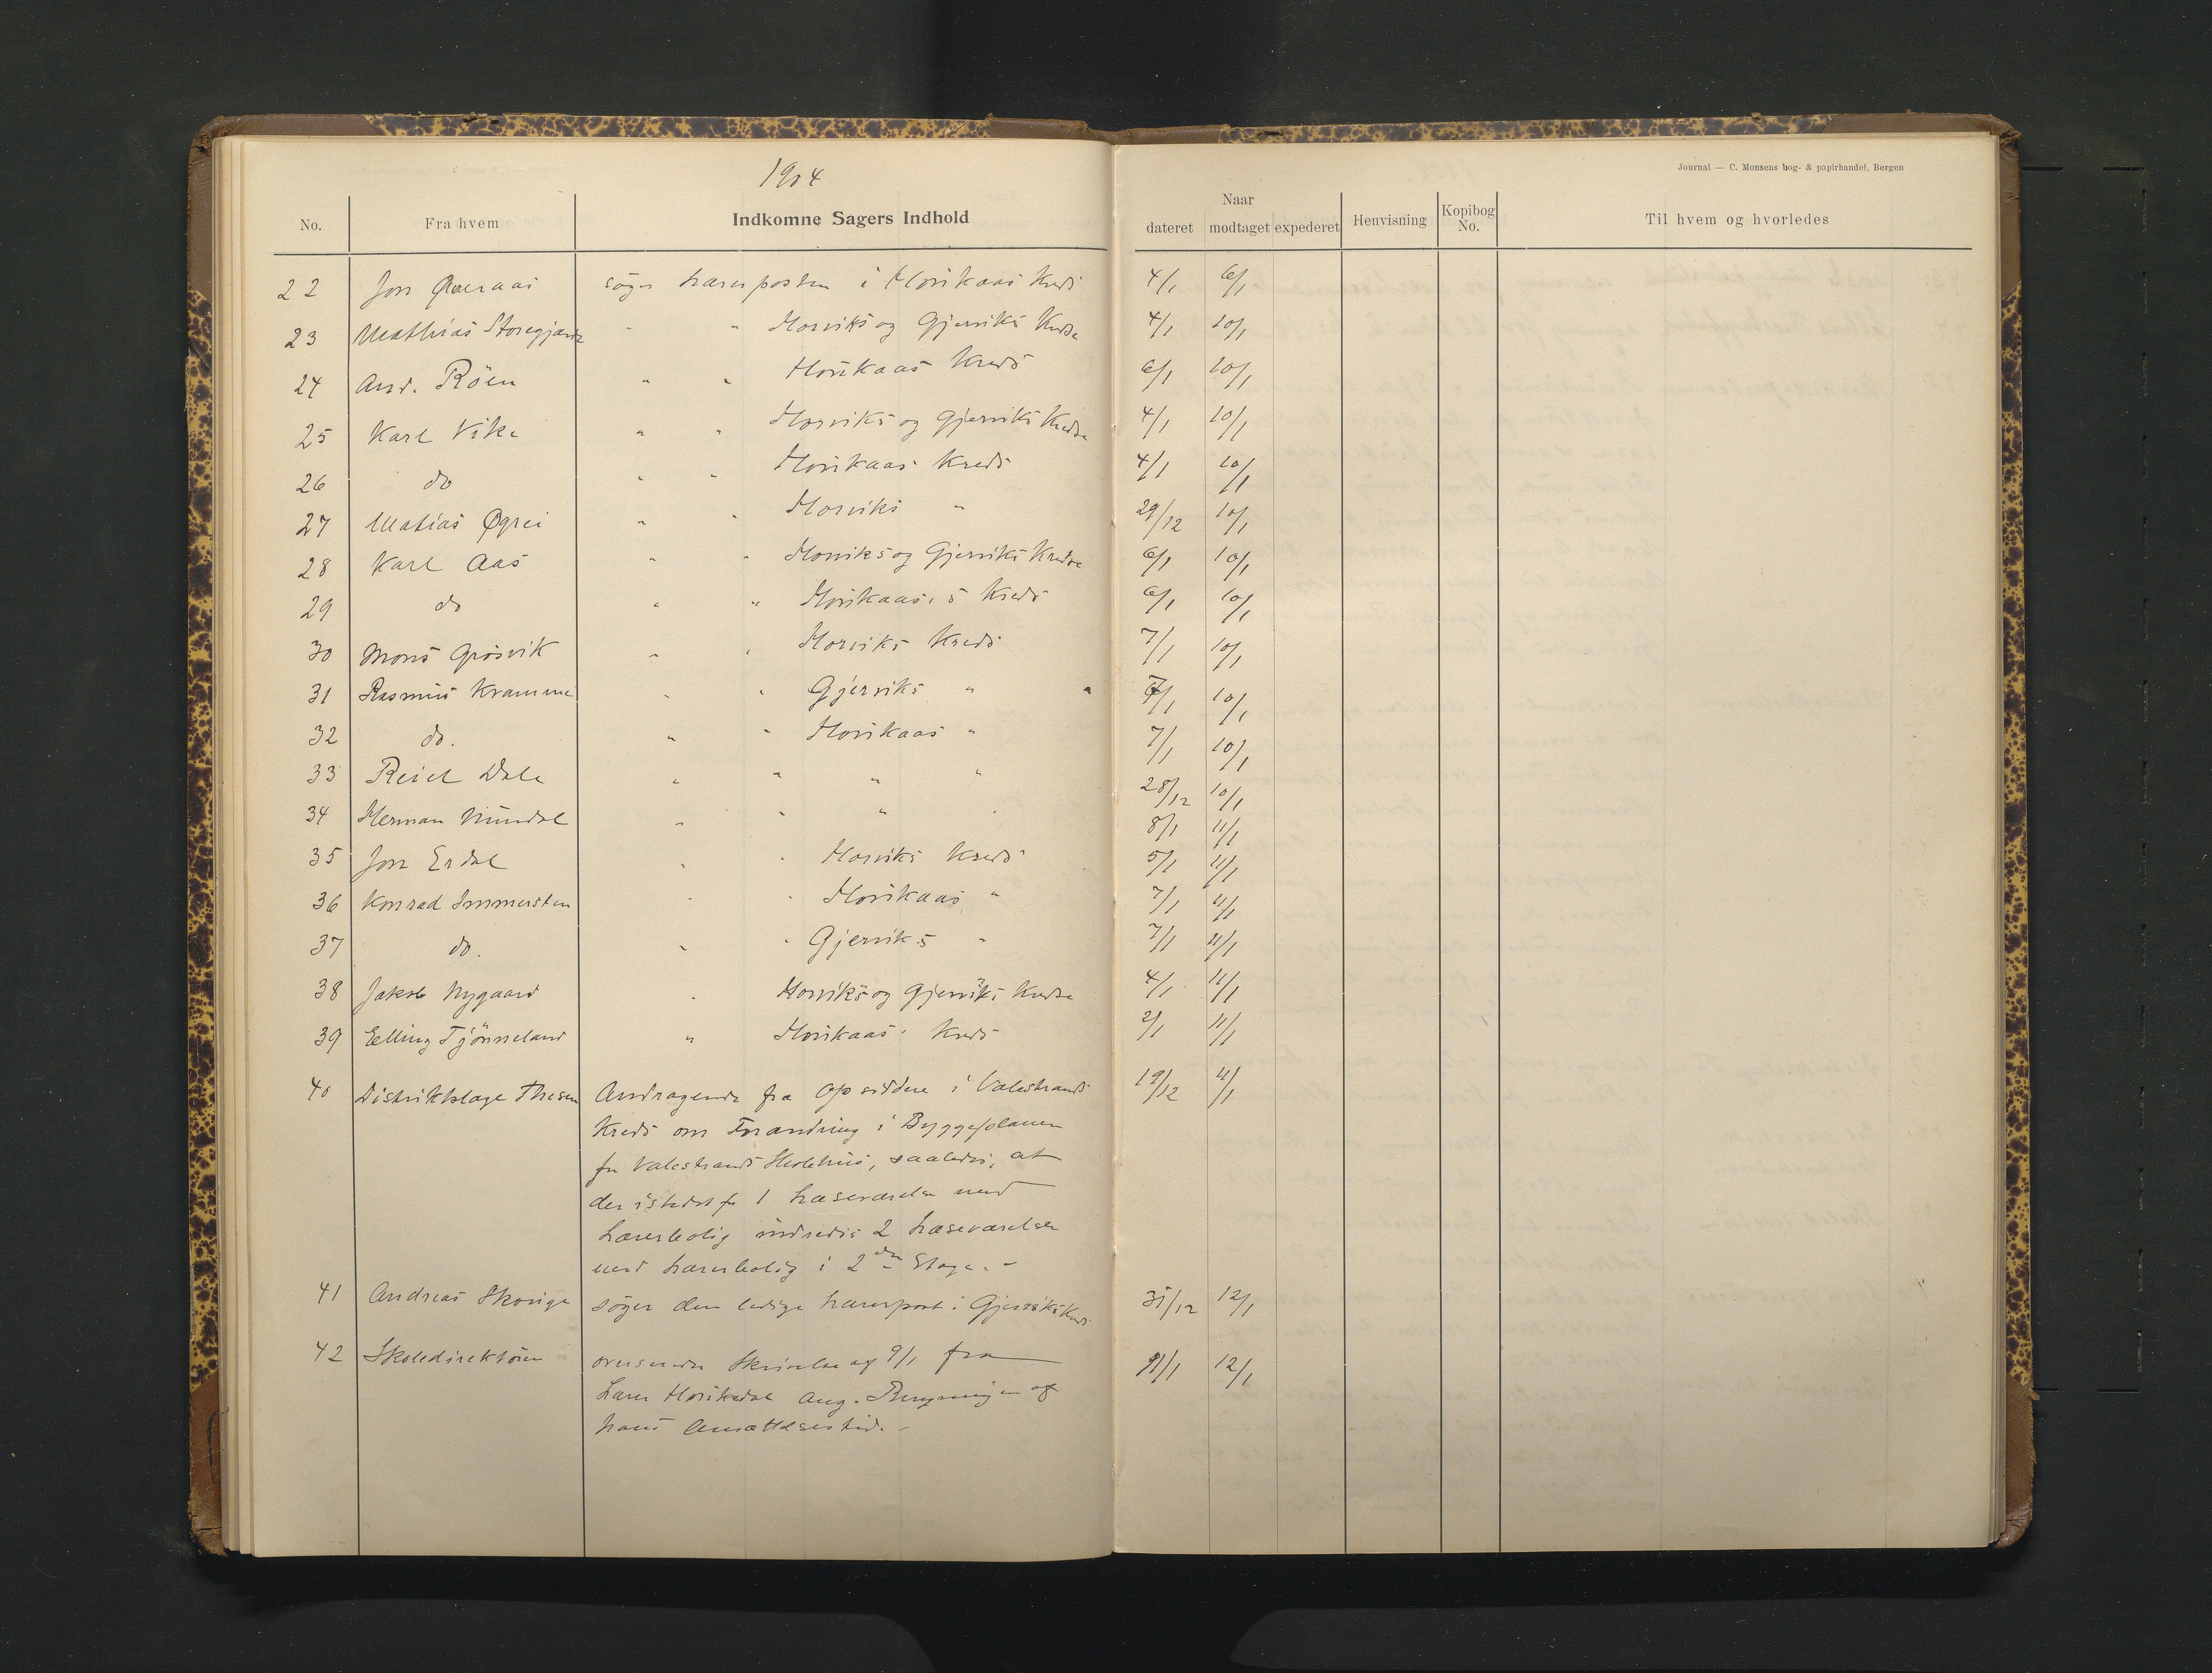 1904
Journal — C. Monsens bog- & papirhandel, Bergen
No. Fra hvem Indkomne Sagers Indhold Naar dateret modtaget expederet Henvisning Kopibog No. Til hvem og hvorledes
22 Jon Øveraas søger Lærerposten i Horsikaas Kreds 4/1 6/1
23 Mathias Storegjærde " " Horviks og Gjerviks Kredse 4/1 10/1
24 And. Röen " " Horsikaas Kreds 6/1 10/1
25 Karl Vike " " Horviks og Gjerviks Kredse 4/1 10/1
26 do " " Horsikaas Kreds 4/1 10/1
27 Matias Øgrei " " Horviks " 29/12 10/1
28 Karl Aas " " Horviks og Gjerviks Kredse 6/1 10/1
29 do " " Horsikaas, s Kreds 6/1 10/1
30 Mons Grösvik " " Horviks Kreds 7/1 10/1
31 Rasmus Kramme " " Gjerviks " 7/1 10/1
32 do. " " Horsikaas " 7/1 10/1
33 Reid Dale " " " " 28/12 10/1
34 Herman Mundal " " " " 8/1 11/1
35 Jon Erdal " " Horviks Kreds 5/1 11/1
36 Konrad " " Horsikaas " 7/1 11/1
37 do. " " Gjerviks " 7/1 11/1
38 Jakob Nygaard " Horviks og Gjerviks Kredse 4/1 11/1
39 Elling Tjönneland " Horsikaas' Kreds 2/1 11/1
40 Distriktslæge Thesen Andragende fra Opsiddere i Valestrands 19/12 11/1
Kreds om Forandring i Byggeplanen
for Valestrands Skolehus, saaledes, at
der istedet for 1 Læseværelse med
Lærerbolig indredes 2 Læseværelser
med Lærerbolig i 2den Etage. -
41 Andreas Skorige søger den ledige Lærerpost i Gjerviks Kreds 31/12 12/1
42 Skoledirektören oversender Skrivelse af 9/1 fra 11/1 12/1
Lærer Horsikdal ang. Beregningen af
hans Ansættelsestid. -